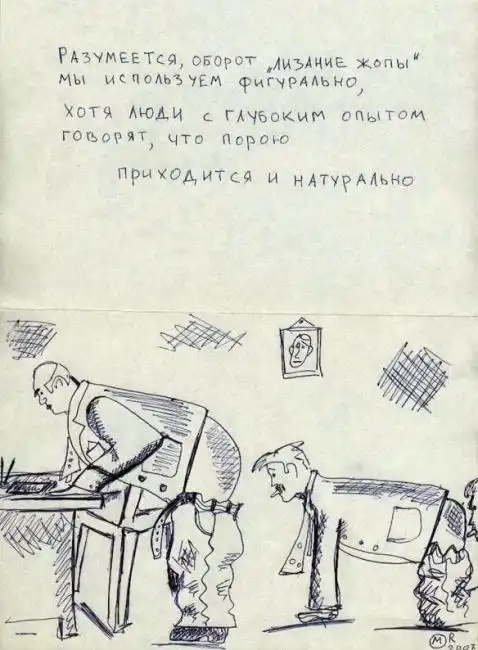 РАЗУМЕЕТСЯ, ОБОРОТ „ЛИЗАНИЕ ЖОПЫ"
МЫ ИСПОЛЬЗУЕМ ФИГУРАЛЬНО,
ХОТЯ ЛЮДИ С ГЛУБОКИМ ОПЫТОМ
ГОВОРЯТ, ЧТО ПОРОЮ
ПРИХОДИТСЯ И НАТУРАЛЬНО
MR
2007